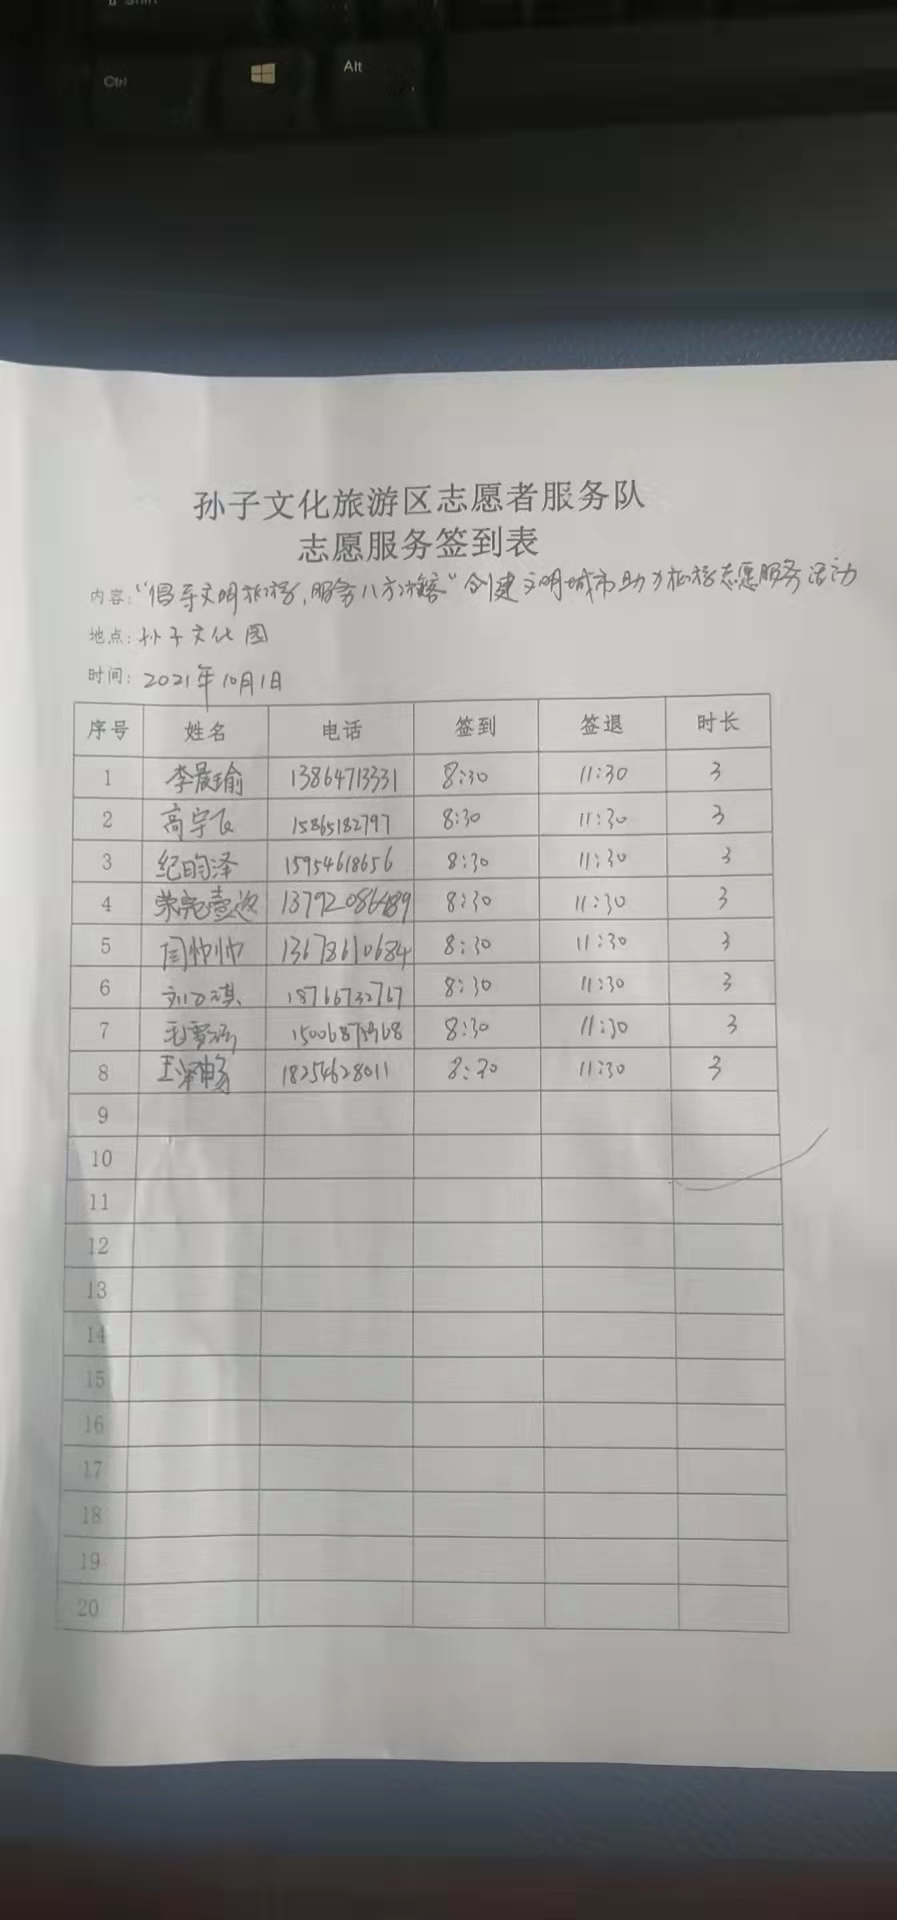 Shift
Ctrl
Alt
孙子文化旅游区志愿者服务队
志愿服务签到表
内容:“倡导文明旅游,服务八方游客”创建文明城市助力旅游志愿服务活动
地点:孙子文化园
时间:2021年10月1日
序号 姓名 电话 签到 签退 时长
1 李晨瑜 13864713331 8:30 11:30 3
2 高宇飞 15865182797 8:30 11:30 3
3 纪昀泽 15954618656 8:30 11:30 3
4 13792086489 8:30 11:30 3
5 闫帅帅 13678610684 8:30 11:30 3
6 18766732767 8:30 11:30 3
7 8:30 11:30 3
8 18254628011 8:30 11:30 3
9
10
11
12
13
14
15
16
17
18
19
20